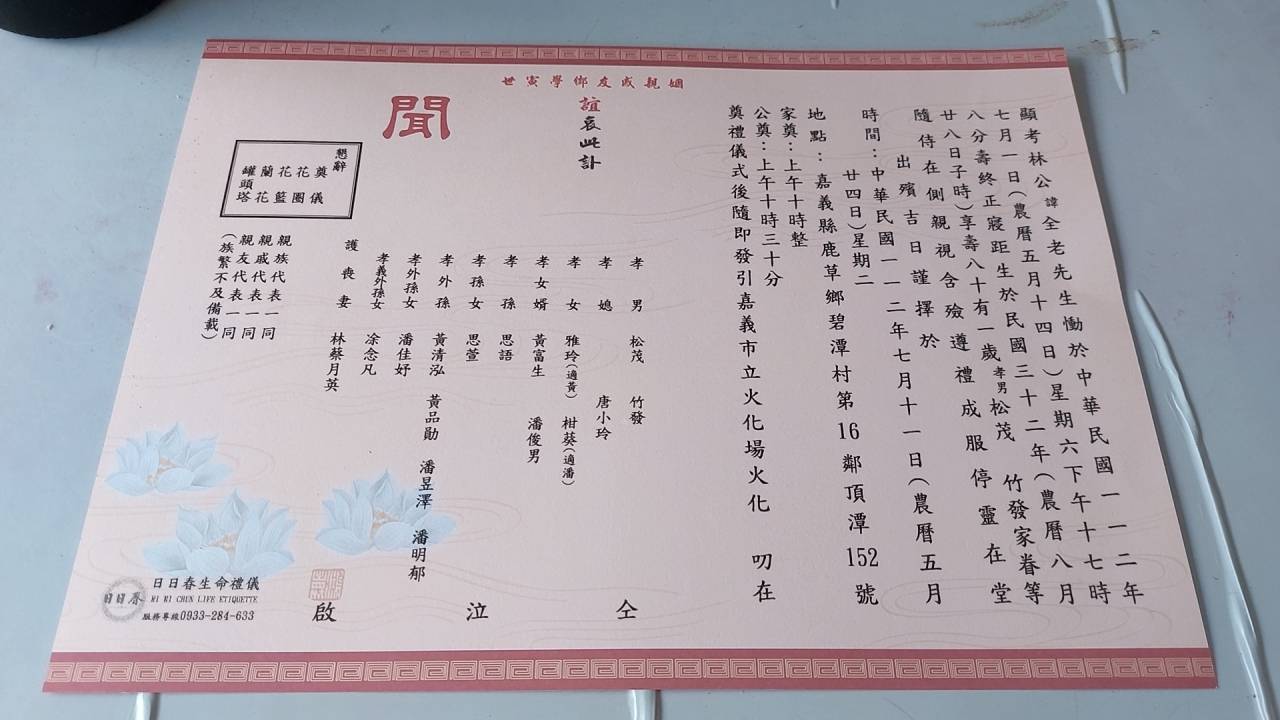 顯考林公諱全老先生慟於中華民國一一二年
七月一日(農曆五月十四日)星期六下午十七時
八分壽終正寢距生於民國三十二年(農曆八月
廿八日子時)享壽八十有一歲孝男松茂 竹發家眷等
隨侍在側親視含殮遵禮成服停靈在堂
出殯吉日謹擇於
時間:中華民國一一二年七月十一日(農曆五月
廿四日)星期二
地點:嘉義縣鹿草鄉碧潭村第16鄰頂潭152號
家奠:上午十時整
公奠:上午十時三十分
奠禮儀式後隨即發引嘉義市立火化場火化 叨在
姻親戚友鄉學寅世
誼哀此訃
聞
孝男 松茂 竹發
孝媳 唐小玲
孝女 雅玲(適黃) 柑葵(適潘)
孝女婿 黃富生 潘俊男
孝孫 思語
孝孫女 思萱
孝外孫 黃清泓 黃品勛 潘昱澤 潘明郁
孝外孫女 潘佳妤
孝義外孫女 凃念凡
護喪妻 林蔡月英
仝泣啟
親族代表一同
親戚代表一同
親友代表一同
(族繁不及備載)
懇辭
奠儀
花圈
花籃
蘭花
罐頭塔
日日春生命禮儀
RI RI CHUN LIFE ETIQUETTE
服務專線0933-284-633
日日春